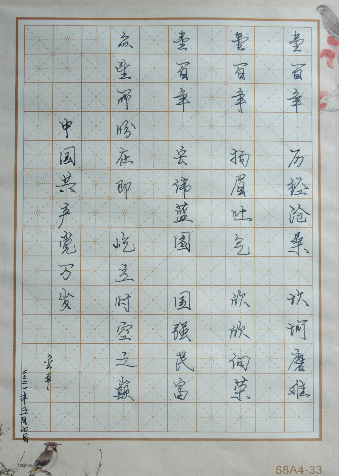 壹百年 历经沧桑 坎坷磨难
壹百年 扬眉吐气 欣欣向荣
壹百年 蓝图 国强民富
众望所盼在即 屹立时空之巅
中国共产党万岁
68A4-33